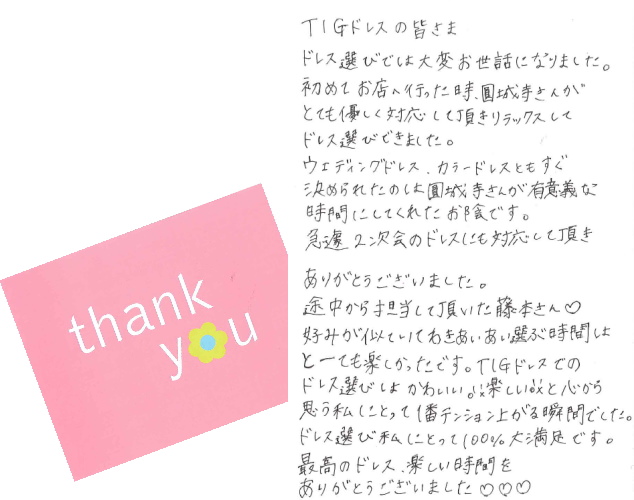 thank
you
TIGドレスの皆さま
ドレス選びでは大変お世話になりました。
初めてお店へ行った時、圓城寺さんが
とても優しく対応して頂きリラックスして
ドレス選びできました。
ウェディングドレス、カラードレスともすぐ
決められたのは圓城寺さんが有意義な
時間にしてくれたお陰です。
急遽2次会のドレスにも対応して頂き
ありがとうございました。
途中から担当して頂いた藤本さん♡
好みが似ていてわきあいあい選ぶ時間は
とーても楽しかったです。TIGドレスでの
ドレス選びはかわいい。楽しいと心から
思う私にとって1番テンション上がる瞬間でした。
ドレス選び私にとって100%大満足です。
最高のドレス、楽しい時間を
ありがとうございました♡♡♡